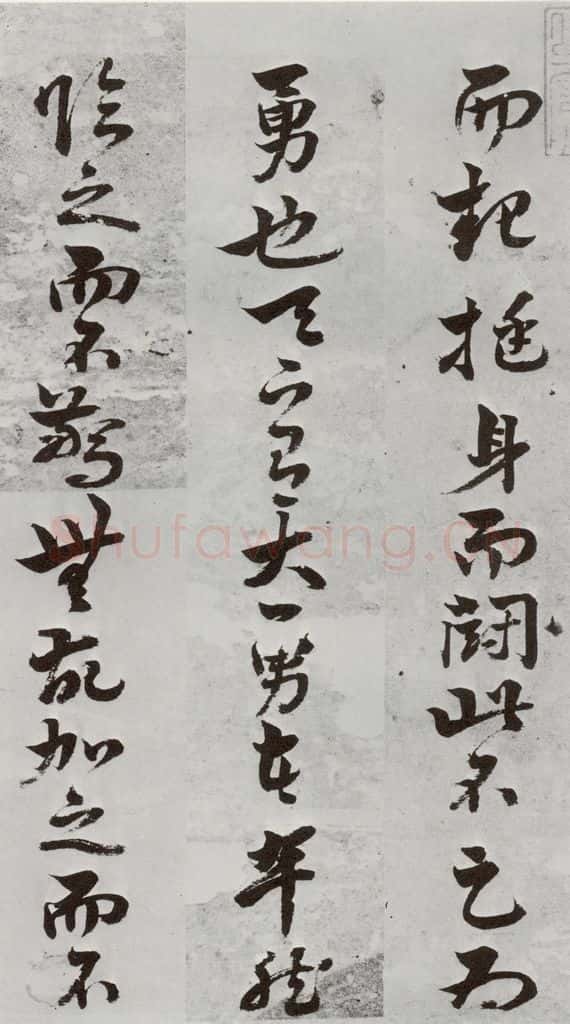 而起挺身而鬪此不足為
勇也天下有大勇者卒然
臨之而不驚無故加之而不
Shufawang.CN